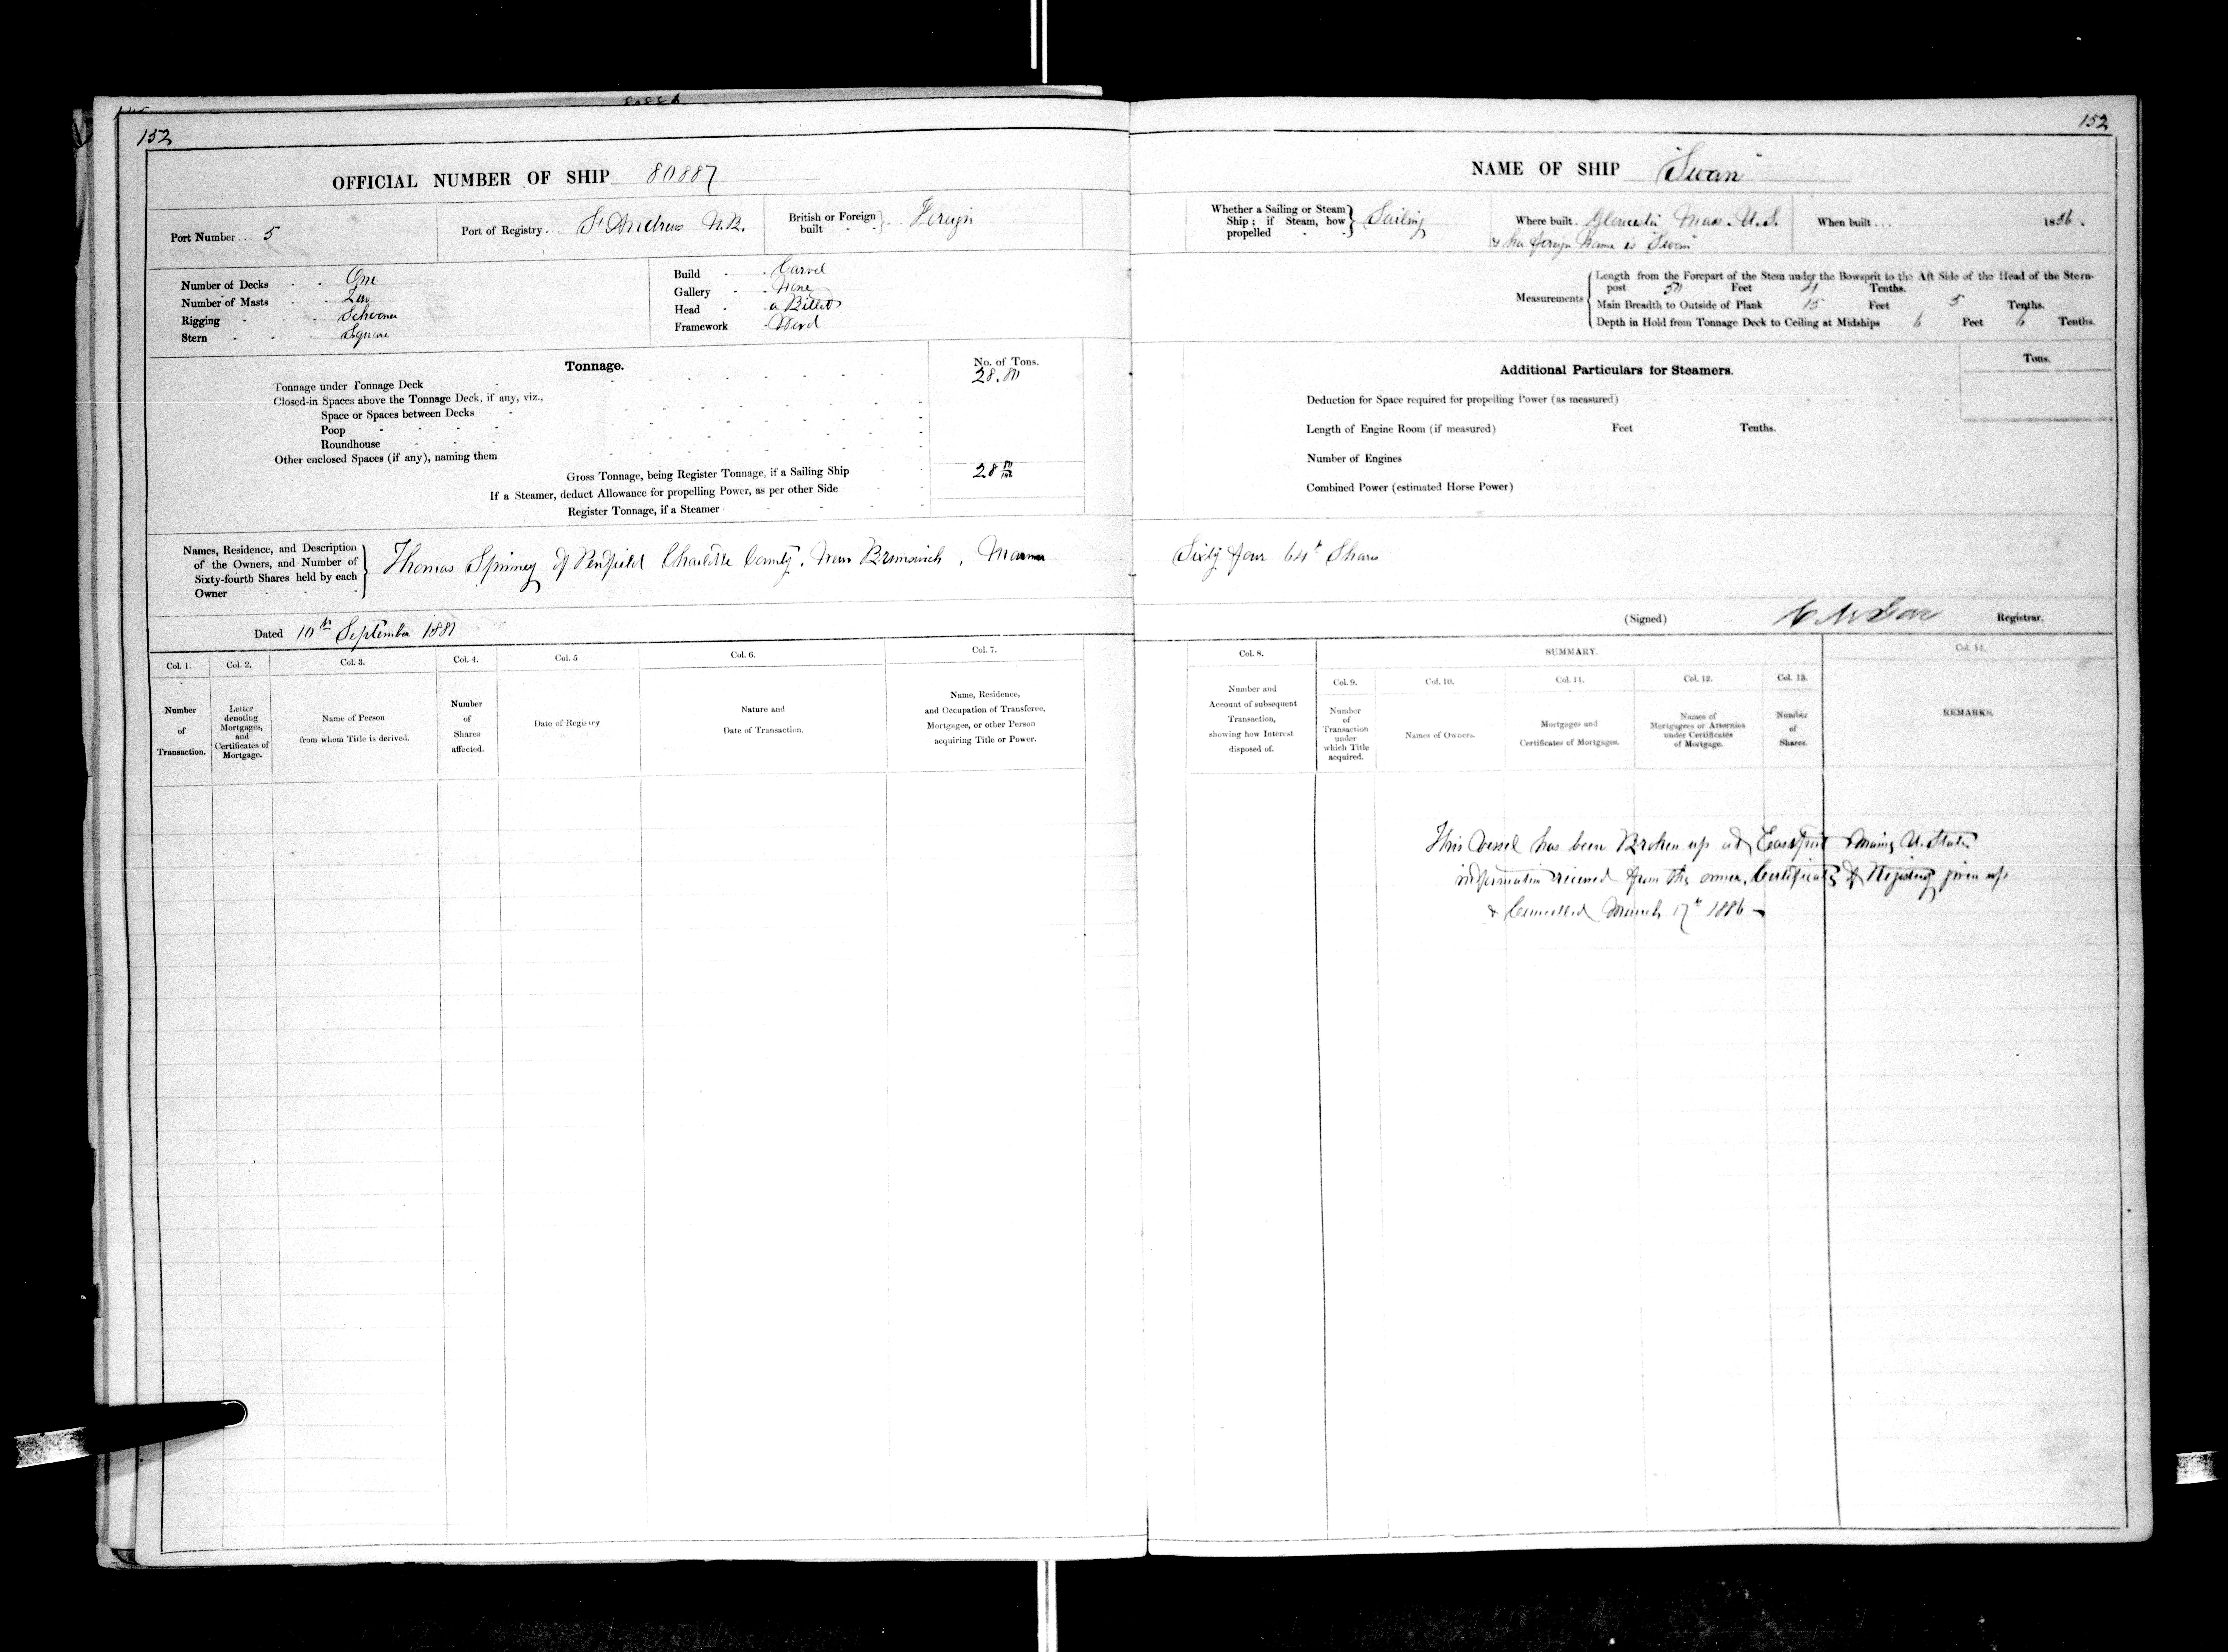 152
OFFICIAL NUMBER OF SHIP 80887
Port Number... 5
Port of Registry... St Andrews N.B.
British or Foreign built - - } Foreign
Number of Decks - - One
Number of Masts - - Two
Rigging - - - Schooner
Stern - - - Square
Build - - Carvel
Gallery - - None
Head - - a Billet
Framework - Wood
Tonnage.
No. of Tons.
Tonnage under Tonnage Deck - 28.80
Closed-in Spaces above the Tonnage Deck, if any, viz.,
Space or Spaces between Decks -
Poop - - - -
Roundhouse - - -
Other enclosed Spaces (if any), naming them
Gross Tonnage, being Register Tonnage, if a Sailing Ship 28 80/100
If a Steamer, deduct Allowance for propelling Power, as per other Side
Register Tonnage, if a Steamer
Names, Residence, and Description
of the Owners, and Number of
Sixty-fourth Shares held by each
Owner - - - -
Thomas Spinney of Penfield Charlotte County, New Brunswick,
Dated 10th September 1881
Col. 1. Col. 2. Col. 3. Col. 4. Col. 5 Col. 6. Col. 7.
Number of Transaction.
Letter denoting Mortgages, and Certificates of Mortgage.
Name of Person from whom Title is derived.
Number of Shares affected.
Date of Registry
Nature and Date of Transaction.
Name, Residence, and Occupation of Transferee, Mortgagee, or other Person acquiring Title or Power.
152
NAME OF SHIP "Swan"
Whether a Sailing or Steam Ship; if Steam, how propelled - - } Sailing
Where built. Gloucester Mass. U.S.
& her foreign Name is "Swan"
When built... 1856.
Measurements
Length from the Forepart of the Stem under the Bowsprit to the Aft Side of the Head of the Stern-
post 50 Feet Tenths.
Main Breadth to Outside of Plank 15 Feet 5 Tenths.
Depth in Hold from Tonnage Deck to Ceiling at Midships 6 Feet 6 Tenths.
Additional Particulars for Steamers.
Tons.
Deduction for Space required for propelling Power (as measured)
Length of Engine Room (if measured) Feet Tenths.
Number of Engines
Combined Power (estimated Horse Power)
Sixty four 64th Shares
(Signed) Registrar.
Col. 8. SUMMARY. Col. 14.
Col. 9. Col. 10. Col. 11. Col. 12. Col. 13.
Number and Account of subsequent Transaction, showing how Interest disposed of.
Number of Transaction under which Title acquired.
Names of Owners.
Mortgages and Certificates of Mortgages.
Names of Mortgagees or Attornies under Certificates of Mortgage.
Number of Shares.
REMARKS.
This Vessel has been Broken up at Eastport Maine U. States
information received from the owner, Certificate of Registry given up
& Cancelled March 17th 1886 -